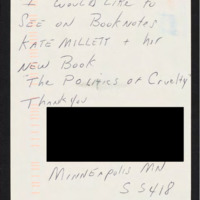 I would like to
SEE on Booknotes
KATE MILLETT + her
NEW Book
"The Politics of Cruelty"
Thank you
Minneapolis MN
55418